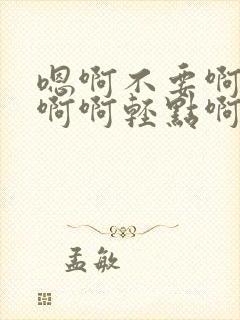 嗯啊不要啊
啊啊輕點啊
孟敏